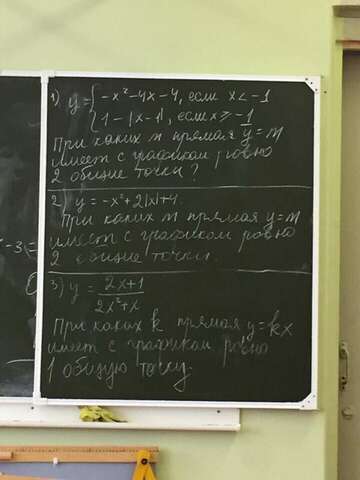 1) y = { -x² - 4x - 4, если x < -1
{ 1 - |x - 1|, если x ≥ -1
При каких m прямая y = m
имеет с графиком ровно
2 общие точки?
2) y = -x² + 2|x| + 4.
При каких m прямая y = m
имеет с графиком ровно
2 общие точки.
3) y = (2x+1)/(2x²+x)
При каких k прямая y = kx
имеет с графиком ровно
1 общую точку.
-3|=